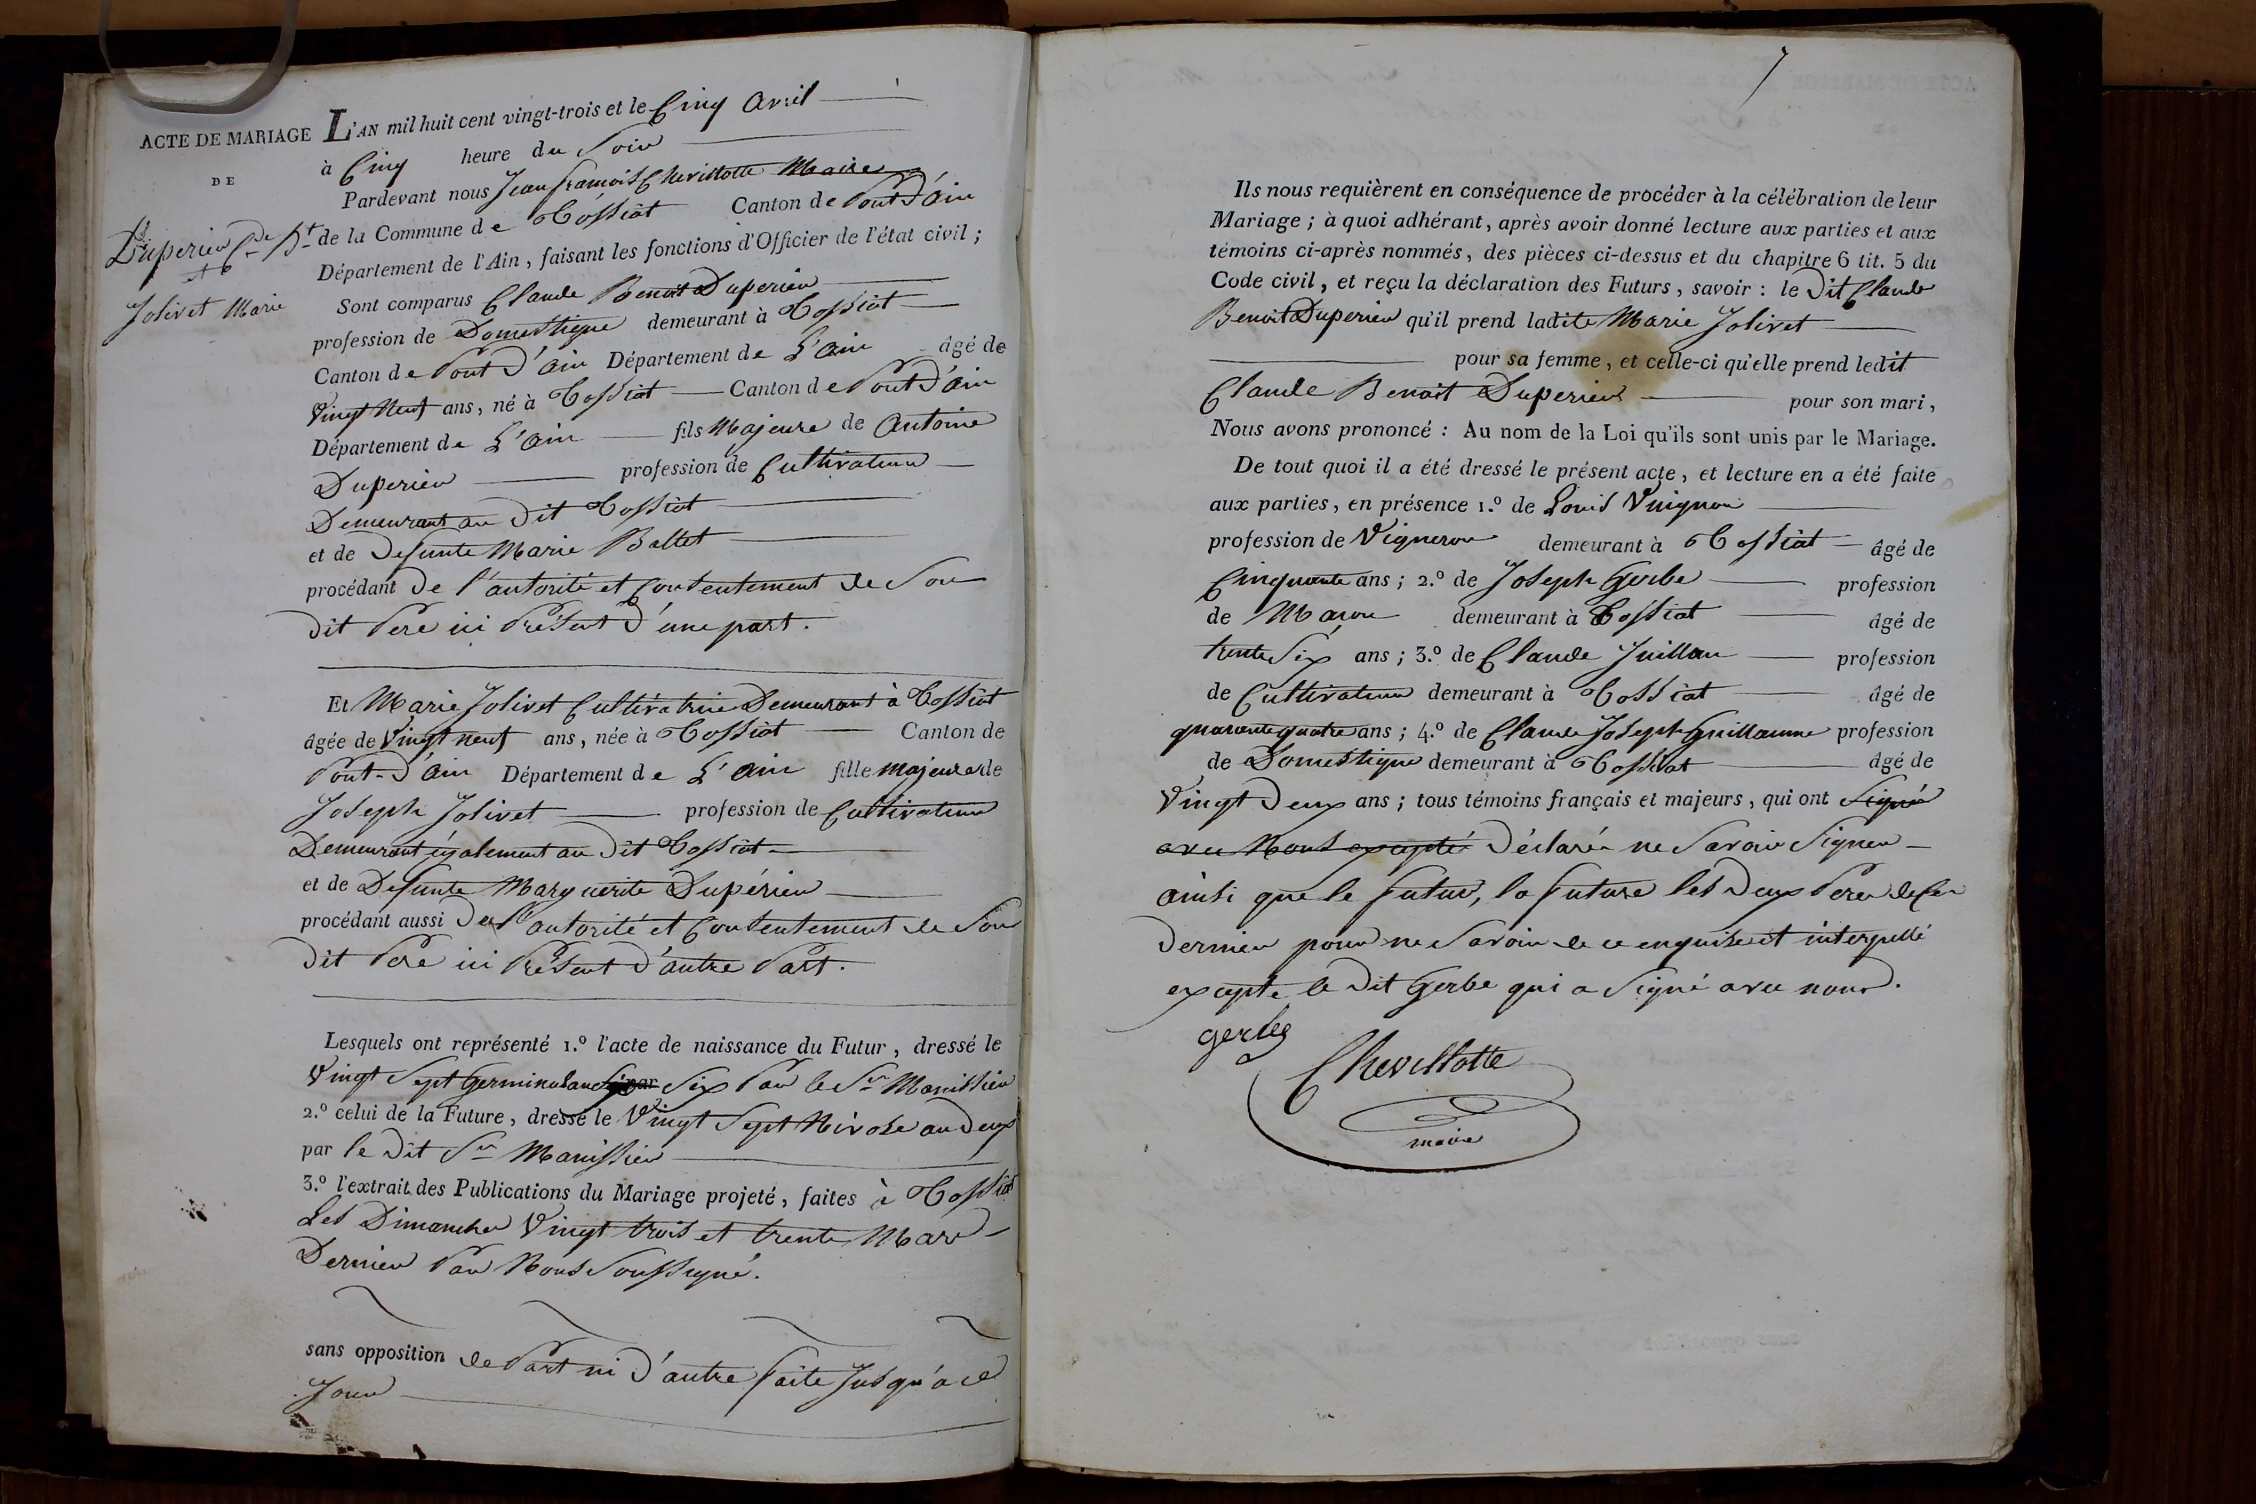 ACTE DE MARIAGE
DE
Duperieu Cde Bt
et
Jolivet Marie
L'AN mil huit cent vingt-trois et le Cinq avril
à Cinq heure du Soir
Pardevant nous Jean francois Chevillotte Maire
de la Commune de Tossiat Canton de Pont d'ain
Département de l'Ain, faisant les fonctions d'Officier de l'état civil ;
Sont comparus Claude Benoit Duperieu
profession de Domestique demeurant à Tossiat
Canton de Pont d'ain Département de L'ain âgé de
Vingt Neuf ans, né à Tossiat Canton de Pont d'ain
Département de L'ain fils Majeure de Antoine
Duperieu profession de Cultivateur
Demeurant au Dit Tossiat
et de Defunte Marie Ballet
procédant De l'autorité et Contentement de Son
dit Pere ici Présent d'une part.
Et Marie Jolivet Cultivatrice Demeurant à Tossiat
âgée de Vingt neuf ans, née à Tossiat Canton de
Pont-d'ain Département de L'ain fille majeure de
Joseph Jolivet profession de Cultivateur
Demeurant également au Dit Tossiat
et de Defunte Marguerite Dupérieu
procédant aussi De l'autorité et Contentement de Son
Dit Pere ici Présent d'autre Part.
Lesquels ont représenté 1.º l'acte de naissance du Futur, dressé le
Vingt Sept Germinal an par Six Par le Sr Manissieu
2.º celui de la Future, dressé le Vingt Sept Nivose an Deux
par le Dit Sr Manissieu
3.º l'extrait des Publications du Mariage projeté, faites à Tossiat
Les Dimanches Vingt trois et trente Mars
Dernier Par Nous Soussigné.
sans opposition de Part ni d'autre faite Jusqu'à ce
Jour
7
Ils nous requièrent en conséquence de procéder à la célébration de leur
Mariage ; à quoi adhérant, après avoir donné lecture aux parties et aux
témoins ci-après nommés, des pièces ci-dessus et du chapitre 6 tit. 5 du
Code civil, et reçu la déclaration des Futurs, savoir : le Dit Claude
Benoit Duperieu qu'il prend ladite Marie Jolivet
pour sa femme, et celle-ci qu'elle prend ledit
Claude Benoit Duperieu pour son mari,
Nous avons prononcé : Au nom de la Loi qu'ils sont unis par le Mariage.
De tout quoi il a été dressé le présent acte, et lecture en a été faite
aux parties, en présence 1.º de Louis Vuignon
profession de Vigneron demeurant à Tossiat âgé de
Cinquante ans ; 2.º de Joseph Gerbe profession
de Macon demeurant à Tossiat âgé de
trente Six ans ; 3.º de Claude Juillan profession
de Cultivateur demeurant à Tossiat âgé de
quarante quatre ans ; 4.º de Claude Joseph Guillaume profession
de Domestique demeurant à Tossiat âgé de
Vingt Deux ans ; tous témoins français et majeurs, qui ont Signé
avec Nous excepté Déclaré ne Savoir Signer
ainsi que le futur, la future les Deux Peres de ces
Dernier pour ne Savoir de ce enquise et interpellé
excepte le Dit Gerbe qui a Signé avec nous.
gerbe
Chevillotte
maire